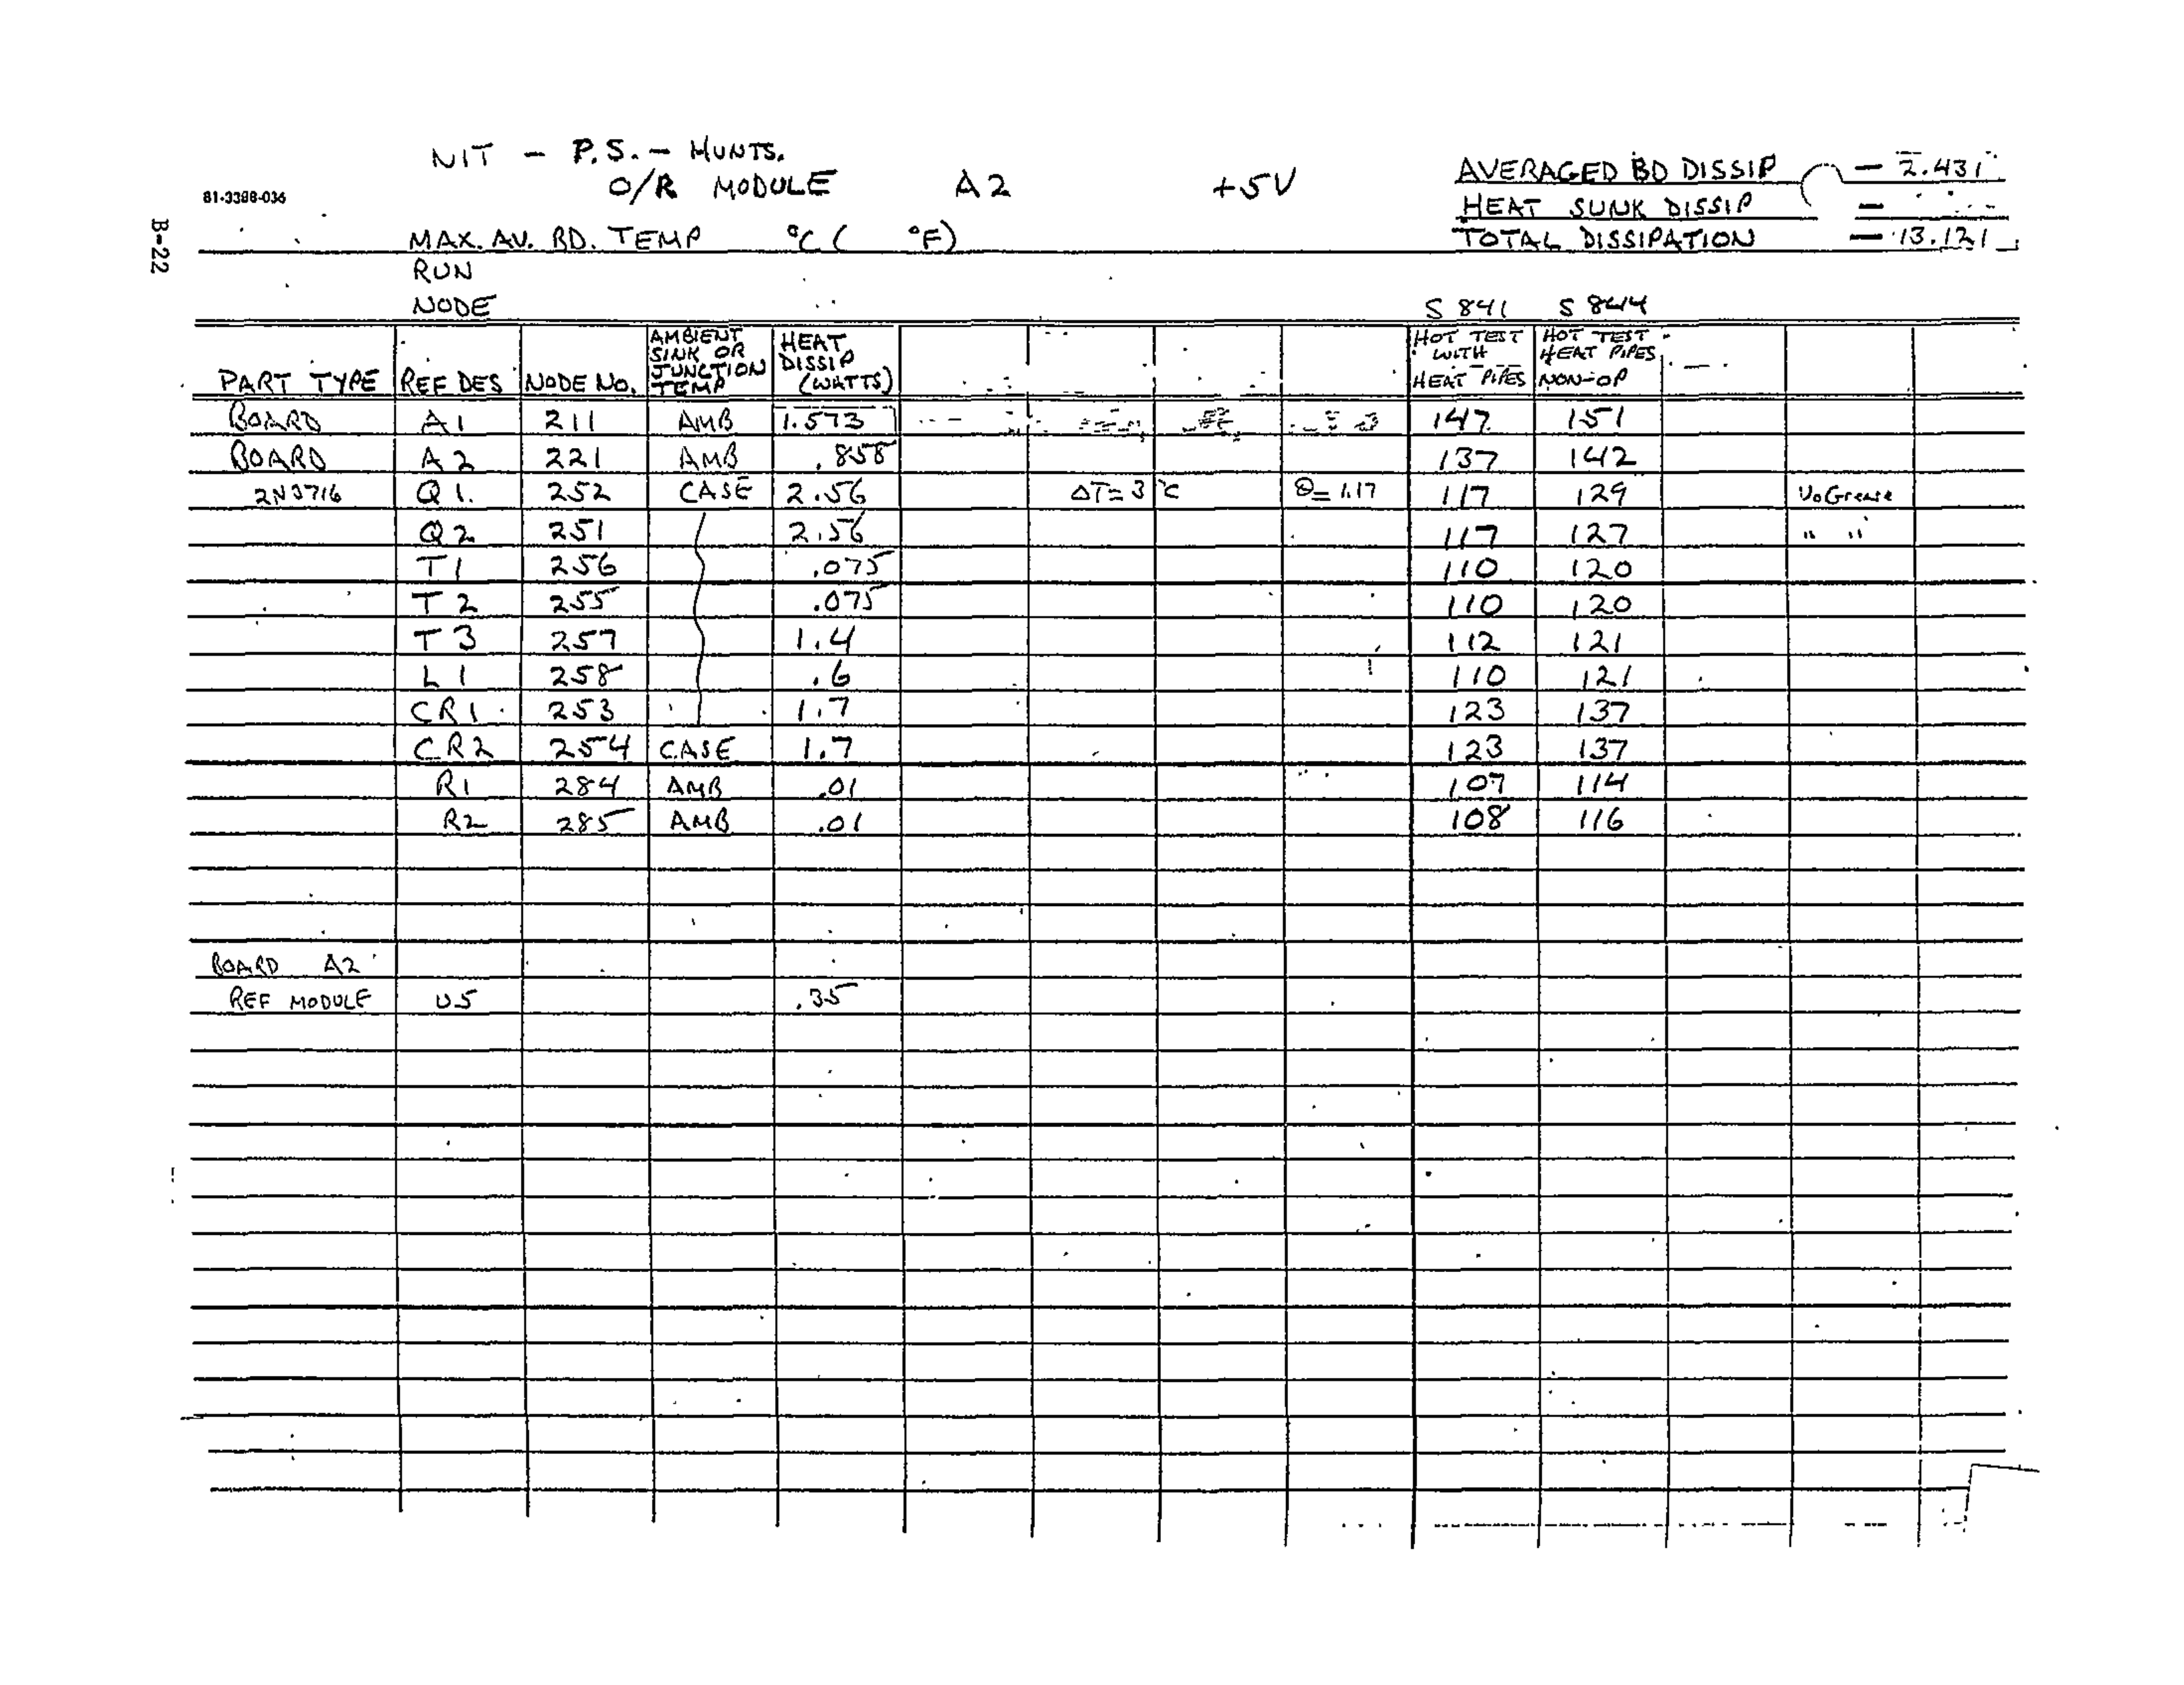 NIT - P.S. - HUNTS.
O/R MODULE A2 +5V
81-3388-036
B-22
AVERAGED BD DISSIP — 2.431
HEAT SUNK DISSIP —
TOTAL DISSIPATION — 13.121
MAX. AV. BD. TEMP °C ( °F)
RUN
NODE S 841 S 844
PART TYPE REF DES NODE No. AMBIENT SINK OR JUNCTION TEMP HEAT DISSIP (WATTS) HOT TEST WITH HEAT PIPES HOT TEST HEAT PIPES NON-OP
BOARD A1 211 AMB 1.573 147 151
BOARD A2 221 AMB .858 137 142
2N3716 Q1. 252 CASE 2.56 ΔT= 3 °C Θ= 1.17 117 129 No Grease
Q2 251 2.56 117 127 " "
T1 256 .075 110 120
T2 255 .075 110 120
T3 257 1.4 112 121
L1 258 .6 110 121
CR1 253 1.7 123 137
CR2 254 CASE 1.7 123 137
R1 284 AMB .01 107 114
R2 285 AMB .01 108 116
BOARD A2
REF MODULE U5 .35